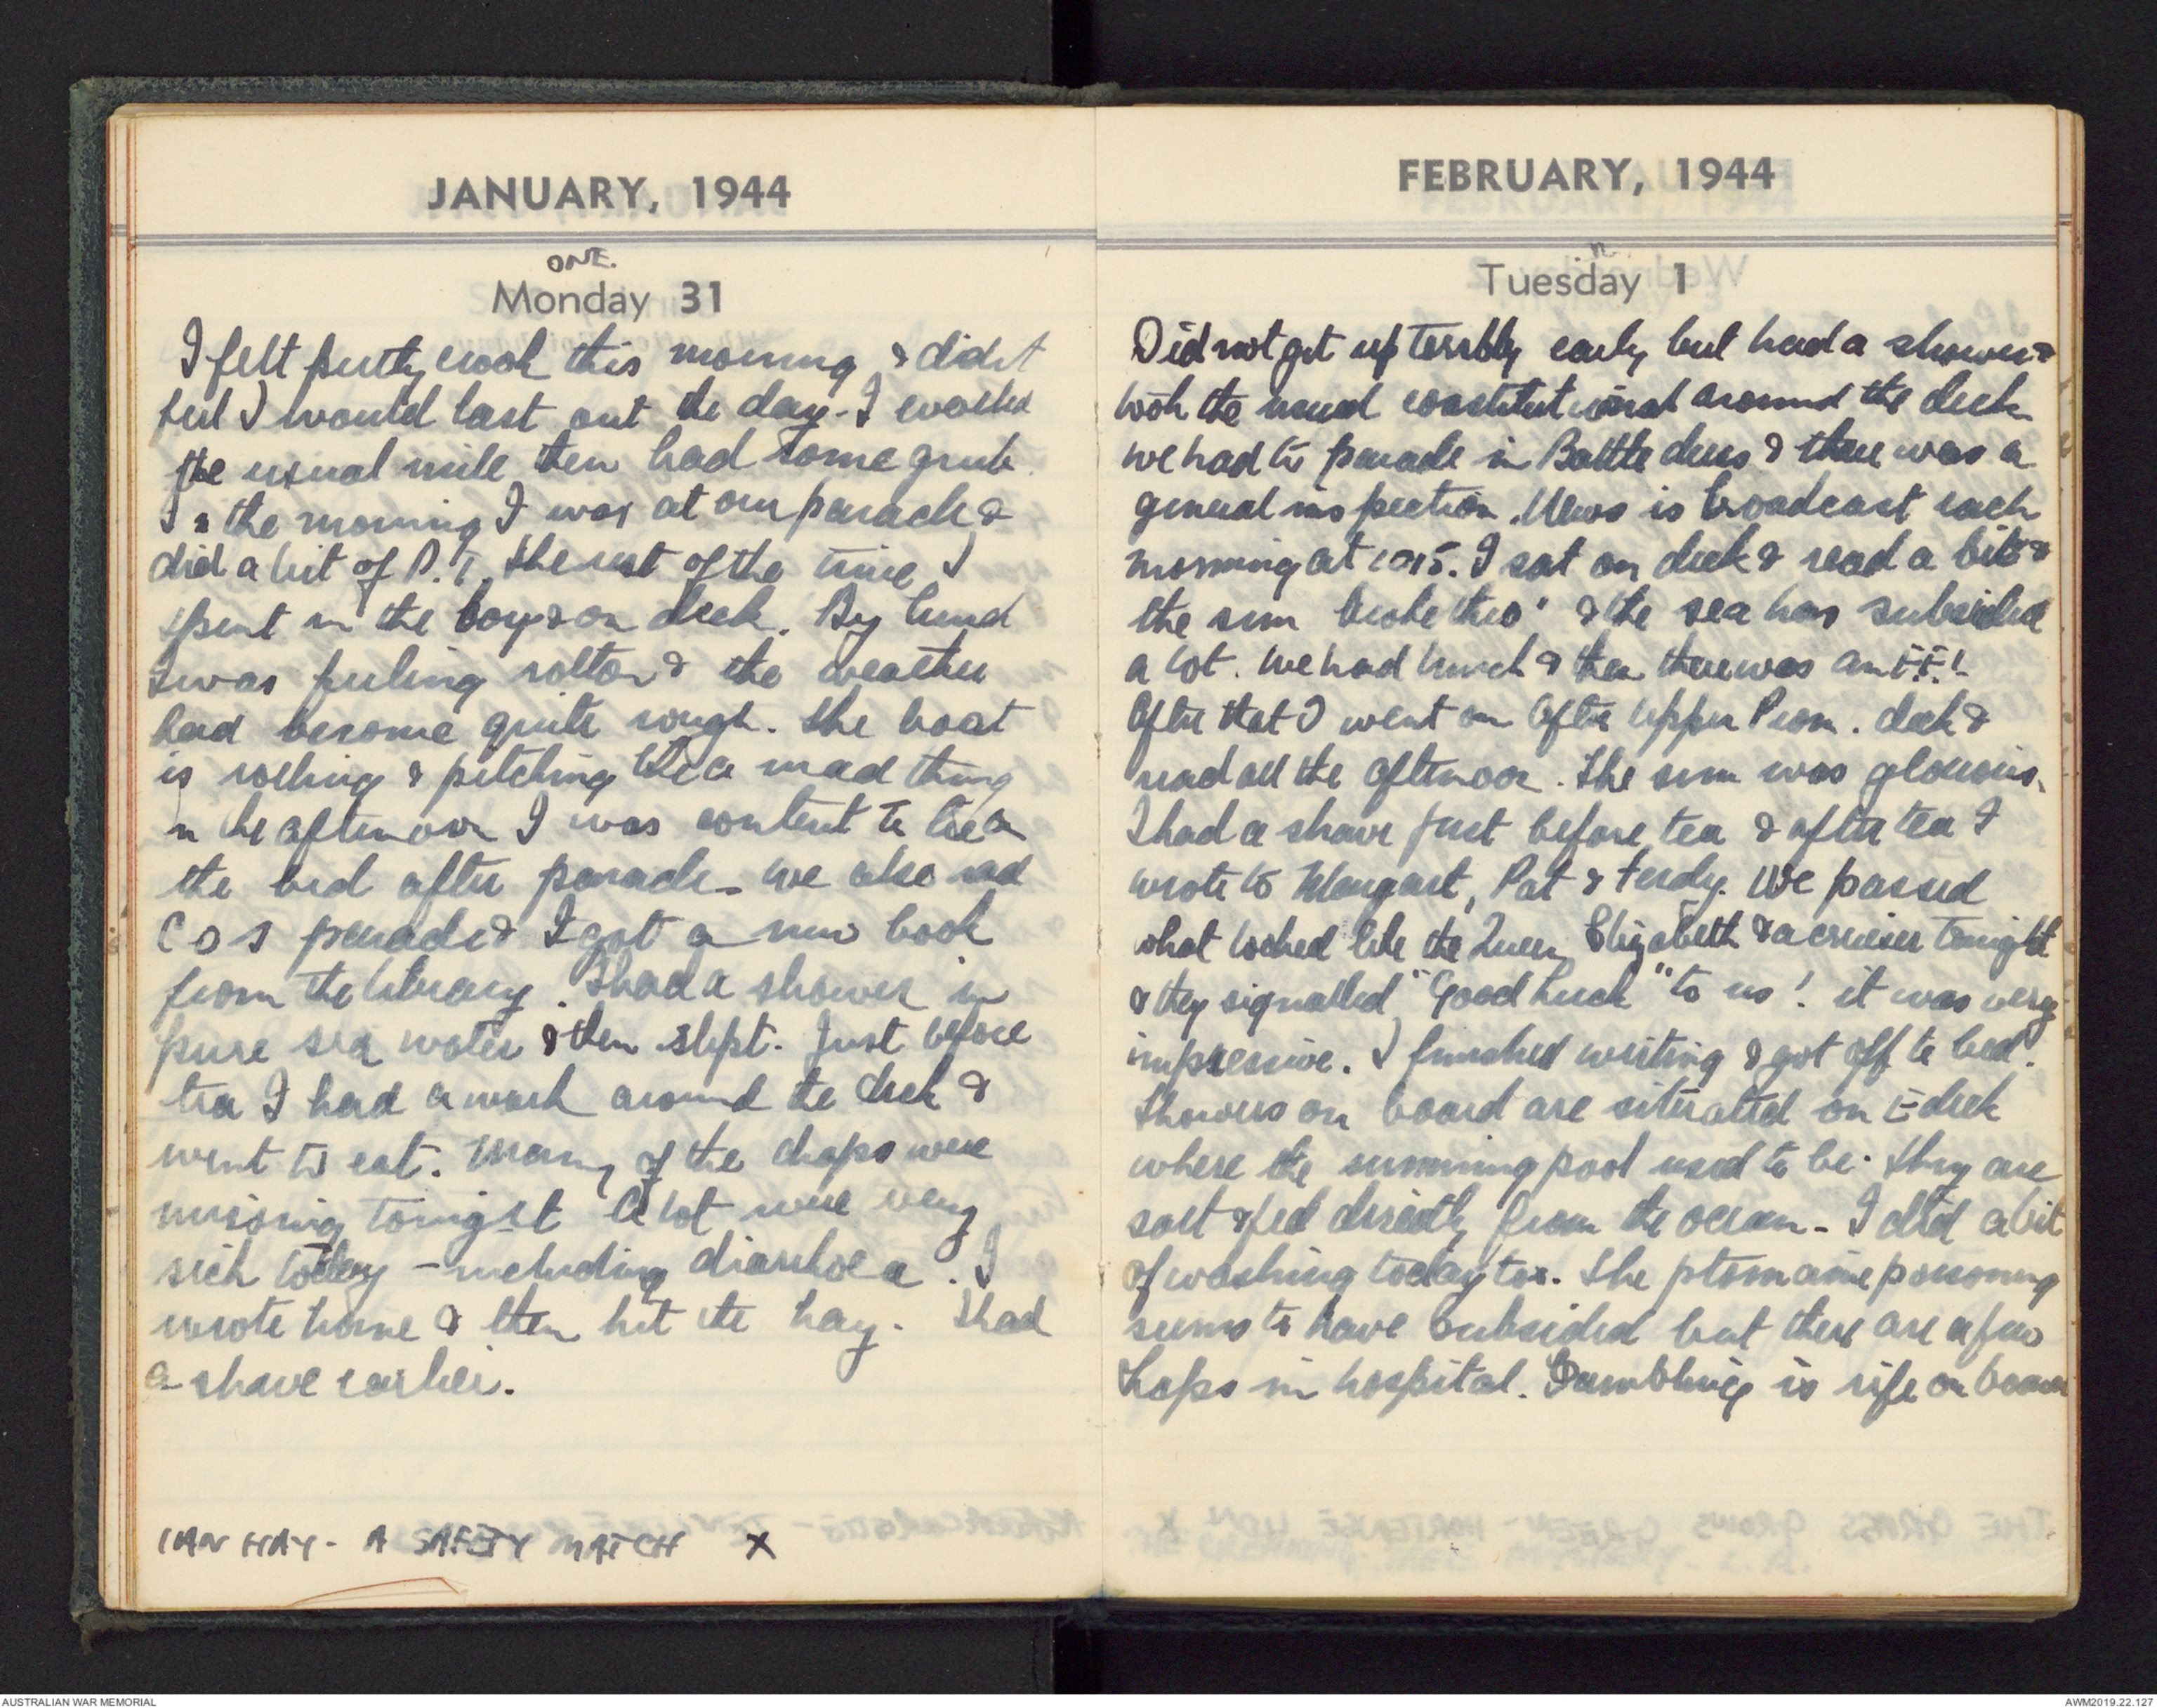 JANUARY, 1944
ONE.
Monday 31
I felt pretty crook this morning & didn't
feel I would last out the day. I walked
the usual mile then had some grub.
In the morning I was at our parade &
did a bit of P.T. The rest of the time I
spent in the bay & on deck. By lunch
I was feeling rotten & the weather
had become quite rough. The boat
is rolling & pitching like a mad thing
in the afternoon I was content to lie on
the bed after parade - we also had
COS parade & I got a new book
from the library. I had a shower in
pure sea water & then slept. Just before
tea I had a walk around the deck &
went to eat. Many of the chaps were
missing tonight A lot were very
sick today - including diarrhoea. I
wrote home & then hit the hay. I had
a shave earlier.
IAN HAY - A SAFETY MATCH X
FEBRUARY, 1944
Tuesday 1
Did not get up terribly early but had a shower &
took the usual constitutional around the deck
we had to parade in Battle dress & there was a
general inspection. News is broadcast each
morning at 1015. I sat on deck & read a bit &
the sun broke thro' & the sea has subsided
a lot. We had lunch & then there was an
After that I went on After Upper Prom. deck &
read all the afternoon. The sun was glorious.
I had a shave just before tea & after tea I
wrote to Margaret, Pat & Ferdy. We passed
what looked like the Queen Elizabeth & a cruiser tonight
& they signalled "Good Luck" to us! it was very
impressive. I finished writing & got off to bed.
Showers on board are situated on E deck
where the swimming pool used to be. They are
salt & fed directly from the ocean - I did a bit
of washing today too. The ptomaine poisoning
seems to have subsided but there are a few
chaps in hospital. Gambling is rife on board
AUSTRALIAN WAR MEMORIAL
AWM2019.22.127